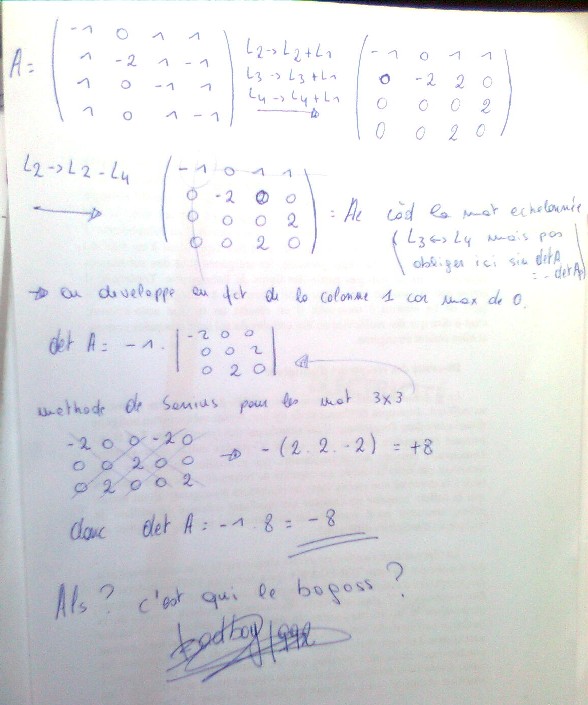 A = ( -1 0 1 1 L2 -> L2 + L1 ( -1 0 1 1
1 -2 1 -1 L3 -> L3 + L1 0 -2 2 0
1 0 -1 1 L4 -> L4 + L1 0 0 0 2
1 0 1 -1 ) → 0 0 2 0 )
L2 -> L2 - L4 ( -1 0 1 1
0 -2 0 0
0 0 0 2
0 0 2 0 ) = Ae càd la mat echelonnée
( L3 <-> L4 mais pas
obliger ici sin detA
= - detAe )
→ on developpe en fct de la colonne 1 car max de 0.
det A = -1 . | -2 0 0 |
| 0 0 2 |
| 0 2 0 |
methode de Sarrius pour les mat 3x3
-2 0 0 -2 0
0 0 2 0 0 → - (2 . 2 . -2) = +8
0 2 0 0 2
donc det A = -1 . 8 = -8
Als ? c'est qui le bogoss ?
badboy1992